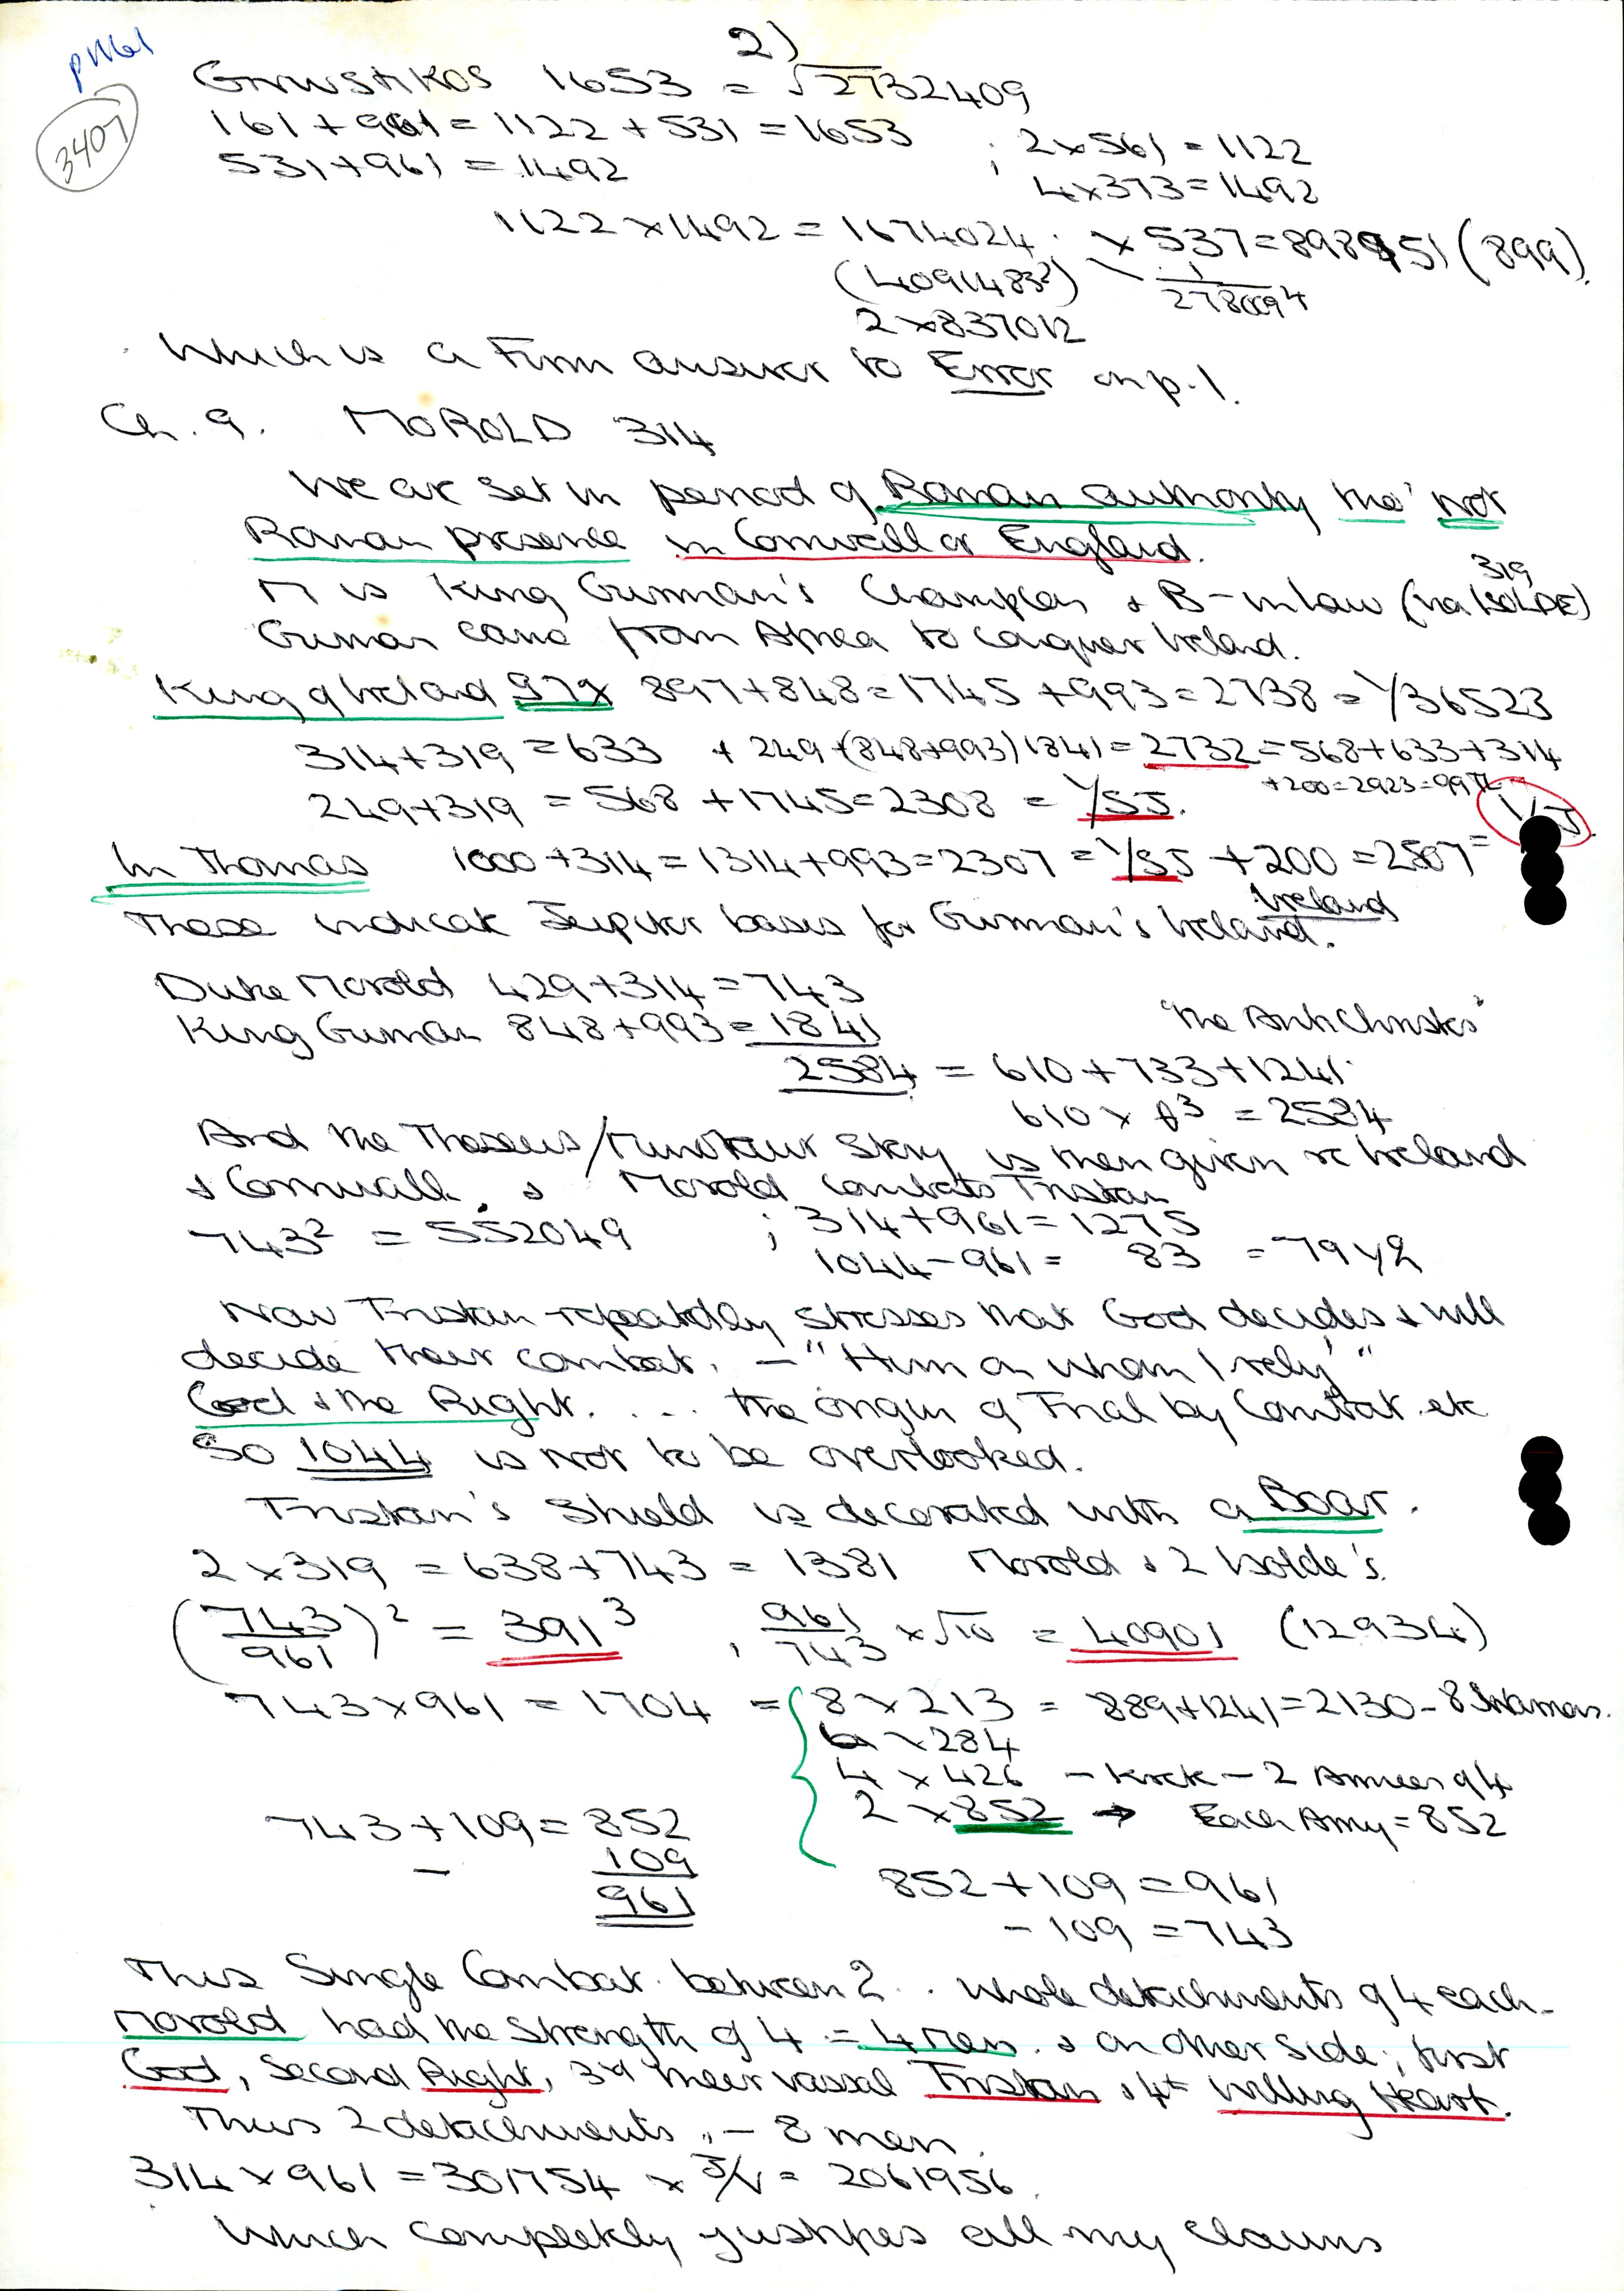 2)
pM61
3407
GNWSTIKOS 1653 = √2732409
161 + 961 = 1122 + 531 = 1653 ; 2 x 561 = 1122
531 + 961 = 1492 4 x 373 = 1492
1122 x 1492 = 1674024 . x 537 = 898951 (899).
(4091483²)
2 x 837012
Which is a Firm answer to Error on p.1.
Ch. 9. MOROLD 314
We are set in period of Roman authority tho' not
Roman presence in Cornwall or England.
319
M is King Gurman's Champion & B-in law (via ISOLDE)
Gurman came from Africa to conquer Ireland.
King of Ireland 897 + 848 = 1745 + 993 = 2738 = 1/36523
314 + 319 = 633 + 249 + (848+993) 1841 = 2732 = 568 + 633 + 314
+200 = 2923 =
249 + 319 = 568 + 1745 = 2308 = 1/SJ.
In Thomas 1000 + 314 = 1314 + 993 = 2307 = 1/SJ + 200 = 2507 =
Ireland
These indicate Jupiter bases for Gurman's Ireland.
Duke Morold 429 + 314 = 743
King Gurman 848 + 993 = 1841 "The Anti Christos"
2584 = 610 + 733 + 1241.
610 x ø³ = 2584
And the Theseus/Minotaur Story is then given re Ireland
& Cornwall. & Morold combats Tristan
743² = 552049 ; 314 + 961 = 1275
1044 - 961 = 83 = 79 y2
Now Tristan repeatedly stresses that God decides & will
decide their combat. - "Him on whom I rely"
God & the Right. ... the origin of Trial by Combat etc
So 1044 is not to be overlooked.
Tristan's Shield is decorated with a Boar.
2 x 319 = 638 + 743 = 1381 Morold & 2 Isolde's.
(743/961)² = 391³ , 961/743 x √10 = 40901 (12934)
743 x 961 = 1704 = { 8 x 213 = 889 + 1241 = 2130 -
6 x 284
4 x 426 - - 2 Armies of 4
2 x 852 → Each Army = 852
743 + 109 = 852
- 109
961
852 + 109 = 961
- 109 = 743
This Single Combat between 2 .. whole detachments of 4 each -
Morold had the strength of 4 = 4 Men. & on other side; first
God, Second Right, 3rd their vassal Tristan & 4th Willing Heart.
Thus 2 detachments, - 8 men.
314 x 961 = 301754 x J/V = 2061956.
Which completely justifies all my claims